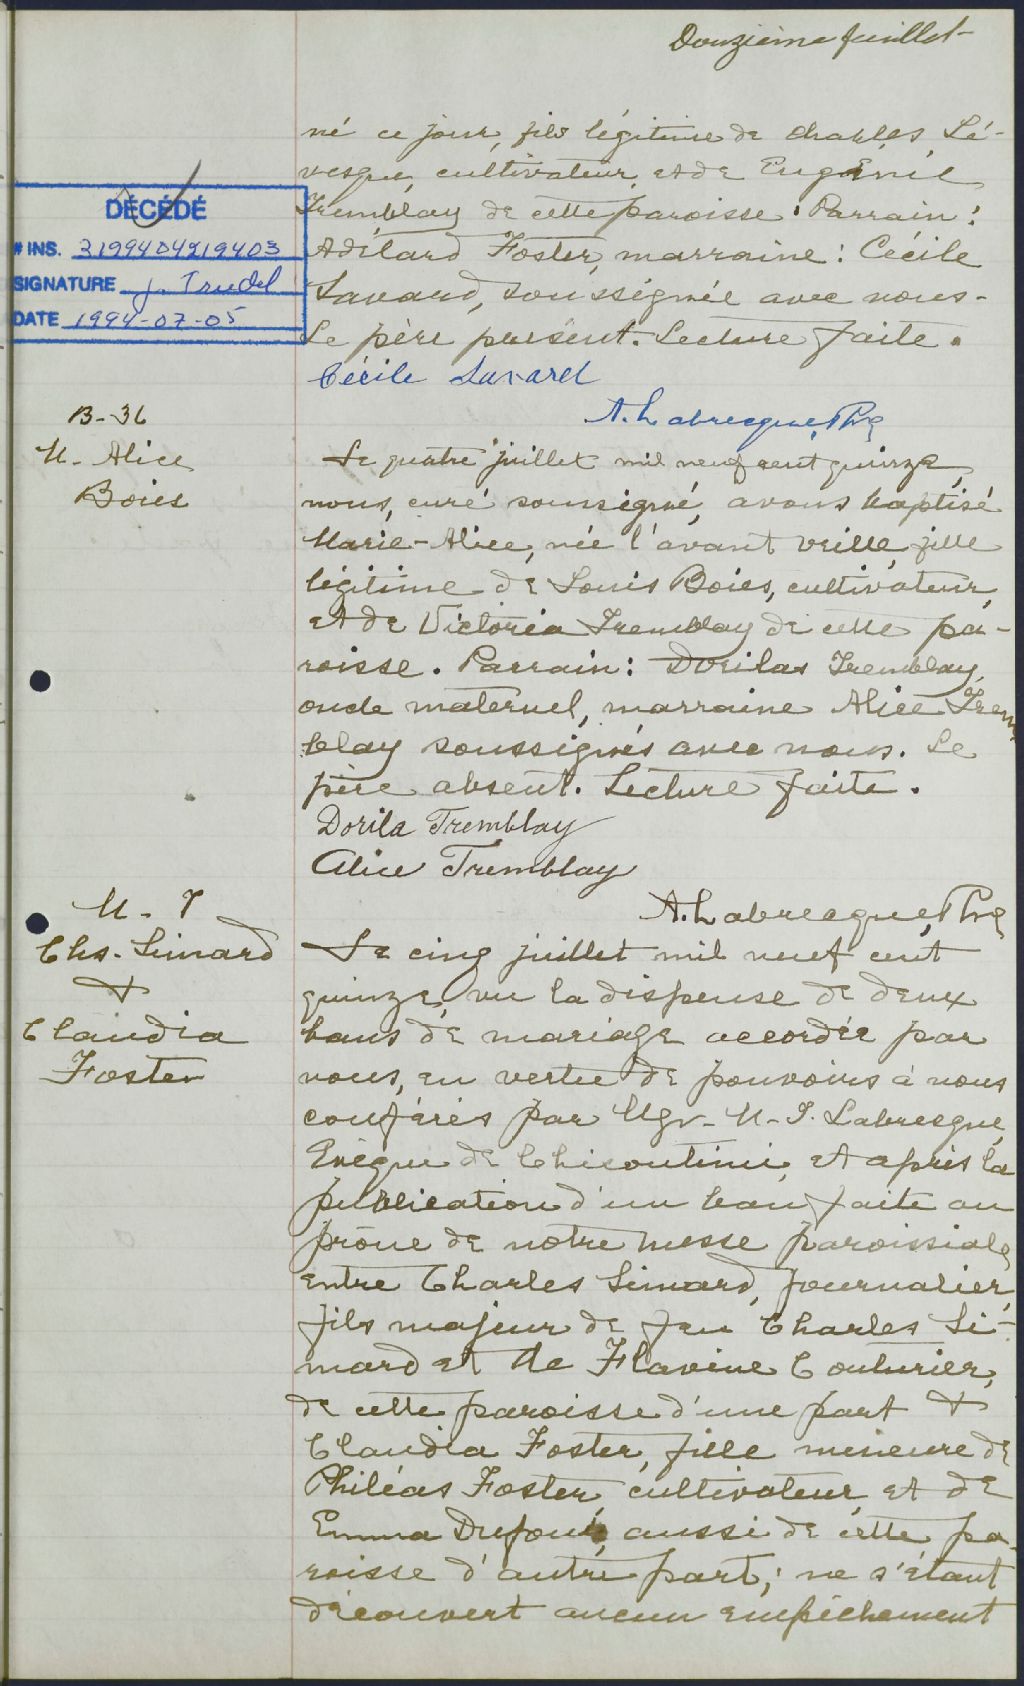 Douzième feuillet
né ce jour, fils légitime de Charles Lé-
vesque, cultivateur, et de Eugénie
Tremblay de cette paroisse. Parrain:
Adélard Foster, marraine: Cécile
Savard, soussignée avec nous.
Le père présent. Lecture faite.
DÉCÉDÉ
# INS. 3199404219403
SIGNATURE J. Trudel
DATE 1994-07-05
Cécile Savard
A. Labrecque, Ptre
B-36
M. Alice
Boies
Le quatre juillet mil neuf cent quinze,
nous, curé soussigné, avons baptisé
Marie-Alice, née l'avant veille, fille
légitime de Louis Boies, cultivateur,
et de Victoria Tremblay de cette pa-
roisse. Parrain: Dorilas Tremblay,
oncle maternel, marraine Alice Trem
blay soussignés avec nous. Le
père absent. Lecture faite.
Dorila Tremblay
Alice Tremblay
A. Labrecque, Ptre
M. 7
Chs. Simard
&
Claudia
Foster
Le cinq juillet mil neuf cent
quinze, vu la dispense de deux
bans de mariage accordée par
nous, en vertu de pouvoirs à nous
conférés par Mgr. M. T. Labrecque,
Evêque de Chicoutimi, et après la
publication d'un ban faite au
prône de notre messe paroissiale
entre Charles Simard, journalier,
fils majeur de feu Charles Si-
mard et de Flavine Couturier,
de cette paroisse d'une part &
Claudia Foster, fille mineure de
Philéas Foster, cultivateur, et de
Emma Dufour, aussi de cette pa-
roisse d'autre part; ne s'étant
découvert aucun empêchement